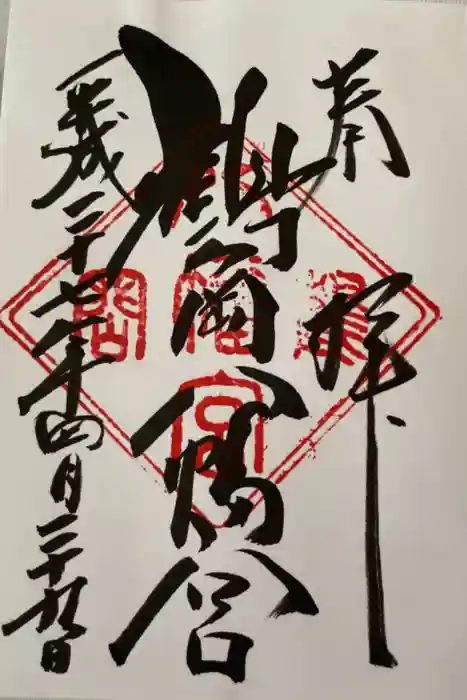 奉拝
岡八幡宮
平成二十七年四月二十九日
八幡宮